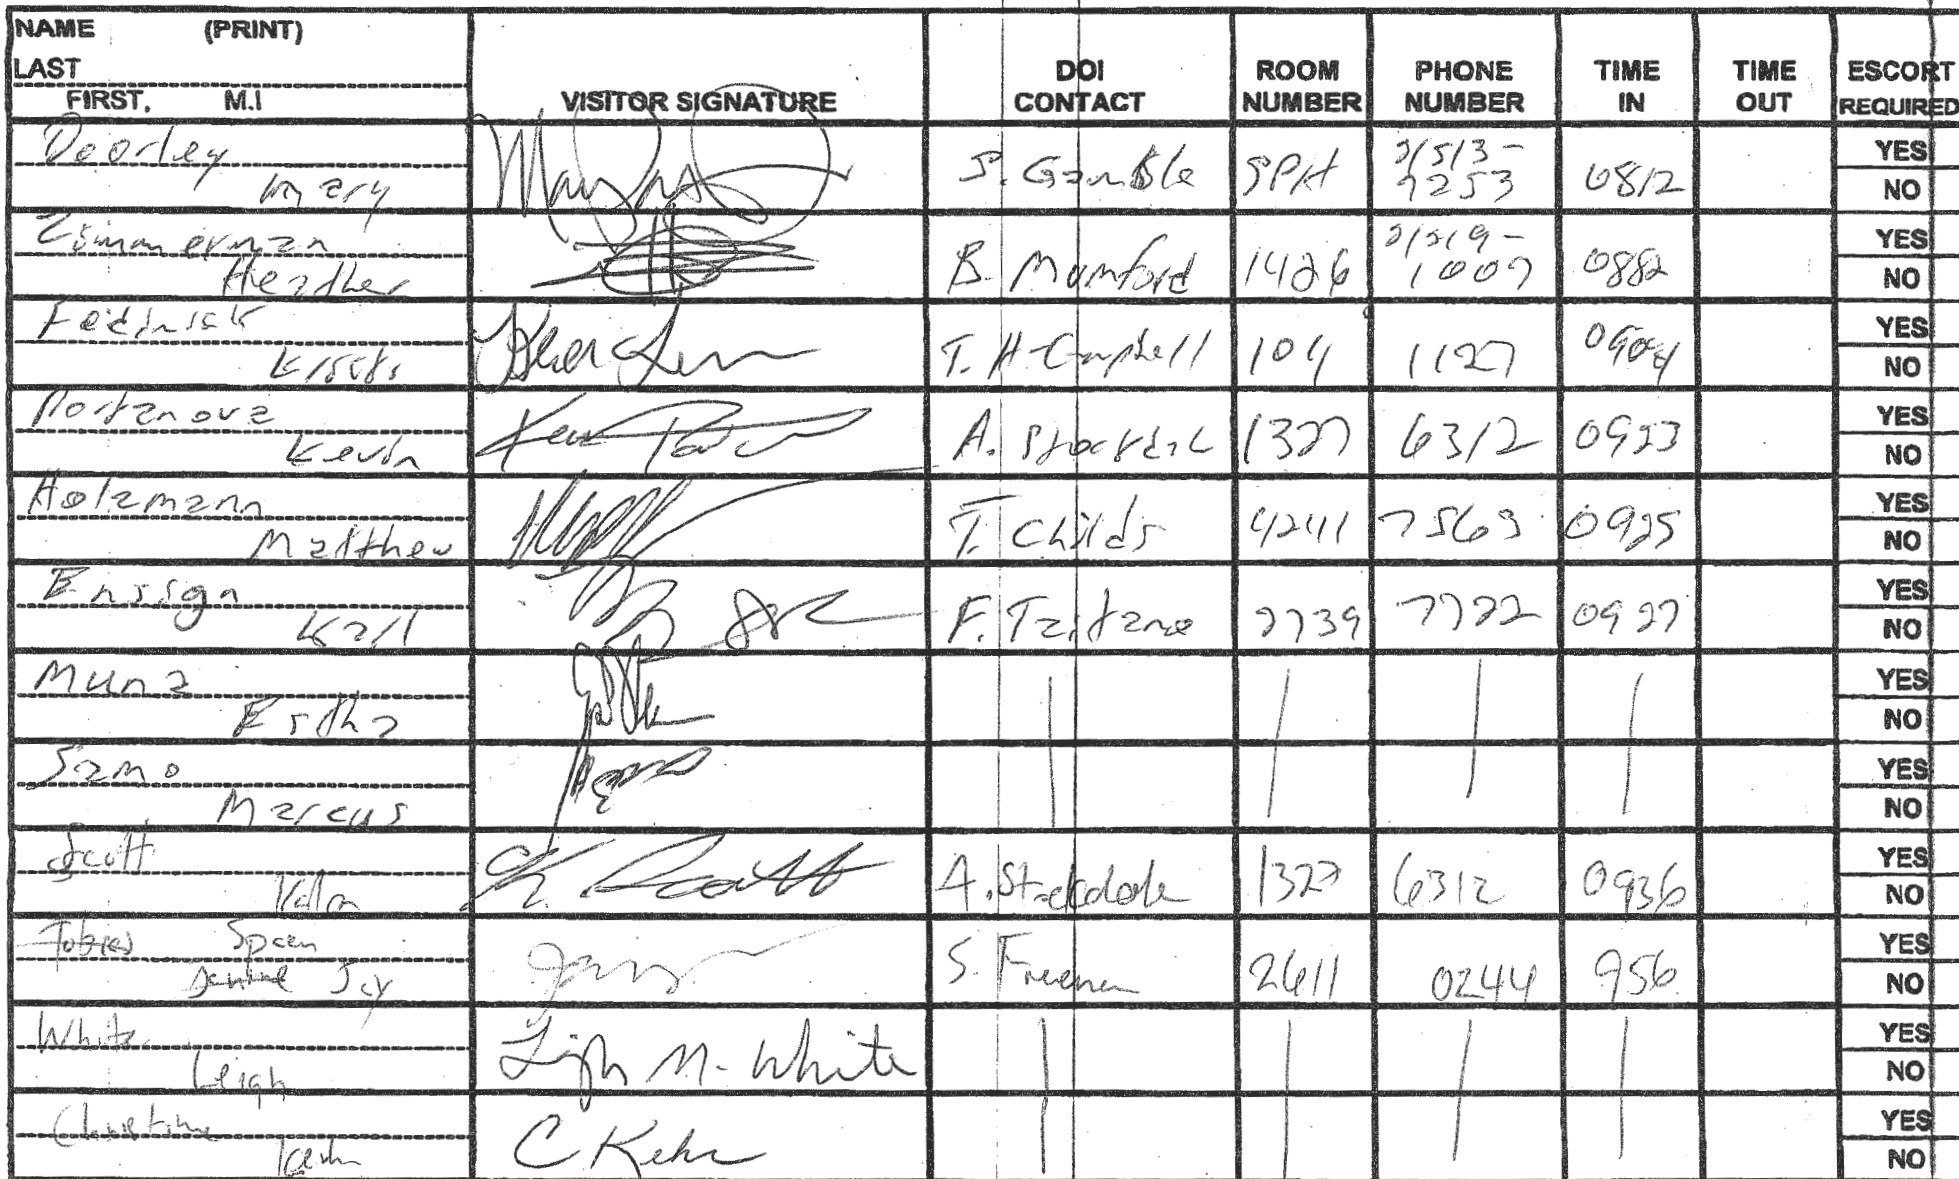 NAME (PRINT)
LAST
FIRST, M.I
VISITOR SIGNATURE
DOI
CONTACT
ROOM
NUMBER
PHONE
NUMBER
TIME
IN
TIME
OUT
ESCORT
REQUIRED
Deorley
Mary
S. Gamble SPH 2/513-
7253
0812
YES
NO
Zimmerman
Heather
B. Mumford 1426 2/219-
1007
0882
YES
NO
T. H-Campbell 104 1127 0904
YES
NO
Portanova
Kevin
A. Stockdale 1327 6312 0923
YES
NO
Holzmann
Matthew
T. Childs 4241 7563 0925
YES
NO
Ensign
Karl
F. Taitano 2739 7722 0927
YES
NO
Munz
YES
NO
Samo
Marcus
YES
NO
Scott
K. Scott
A. Stockdale 1327 6312 0936
YES
NO
Tobias Spaen
Janine Joy
S. Freeman 2611 0244 956
YES
NO
White
Leigh
Leigh M. White
YES
NO
Christina
Kehn
C Kehn
YES
NO